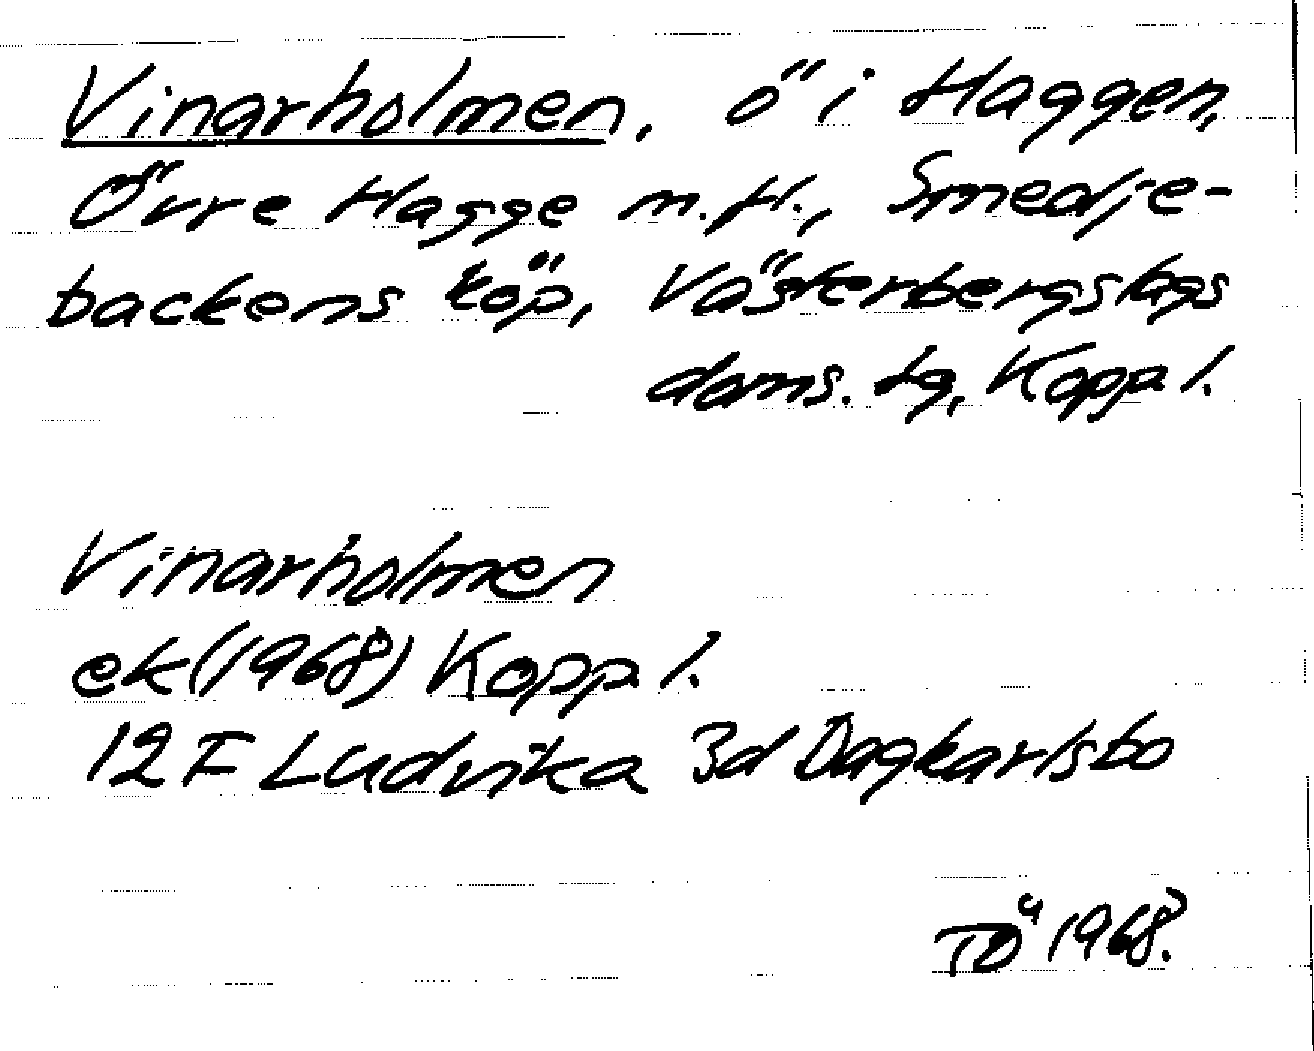 Vinarholmen, ö i Haggen,
Övre Hagge m.fl., Smedje-
backens köp, Västerbergslags
doms. tg, Koppl.
Vinarholmen
ek (1968) Koppl.
12 F Ludvika 3d Dagkarlsbo
TÖ 1968.